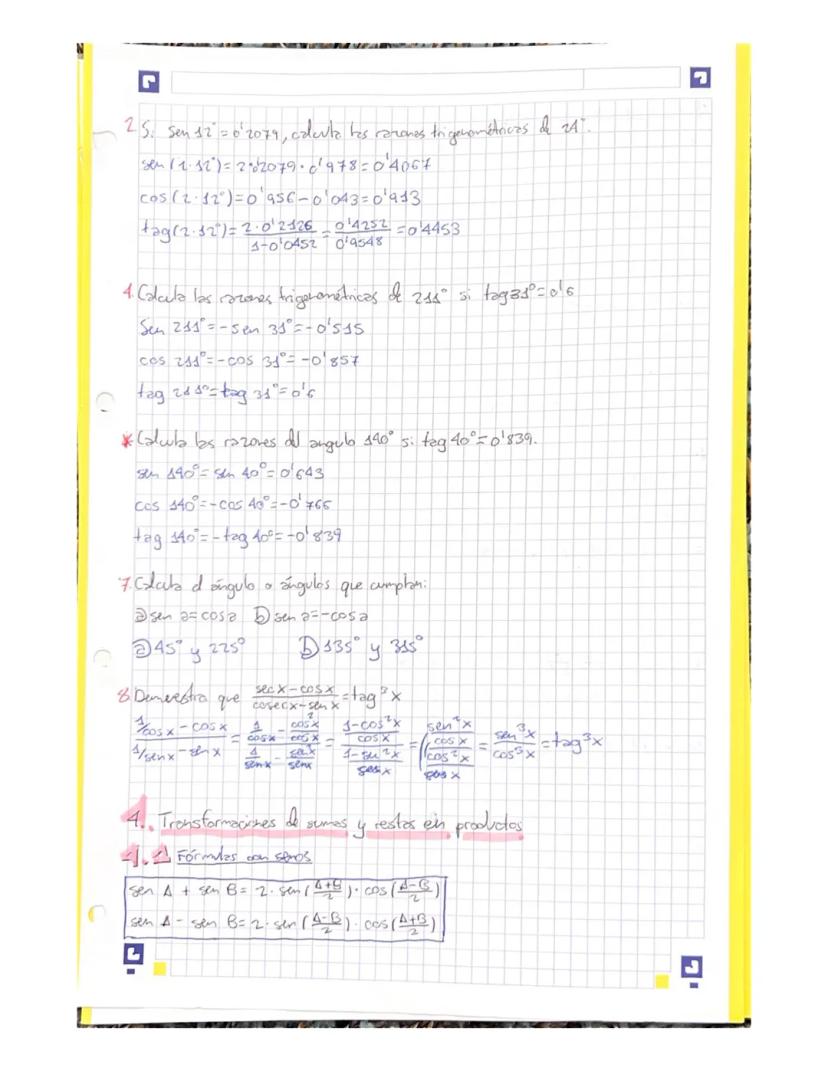 2. Si sen 12°=0'2079, calcula las razones trigonométricas de 24°.
sen (2·12°)= 2·0'2079·0'978=0'4067
cos (2·12°)=0'956-0'043=0'913
tag(2·12°)= 2·0'2126 / 1-0'0452 = 0'4252 / 0'9548 =0'4453
4. Calcula las razones trigonométricas de 211° si tag31°=0'6
Sen 211°=-sen 31°=-0'515
cos 211°=-cos 31°=-0'857
tag 211°=tag 31°=0'6
* Calcula las razones del angulo 140° si tag 40°=0'839.
sen 140°= sen 40°=0'643
cos 140°=-cos 40°=-0'766
tag 140°=-tag 40°=-0'839
7. Calcula el ángulo o ángulos que cumplan:
a) sen a=cosa b) sen a=-cosa
a) 45° y 225° b) 135° y 315°
8. Demuestra que (secx-cosx)/(cosecx-senx)=tag³x
(1/cosx - cosx)/(1/senx - senx) = (1/cosx - cos²x/cosx)/(1/senx - sen²x/senx) = ((1-cos²x)/cosx)/((1-sen²x)/senx) = (sen²x/cosx)/(cos²x/senx) = sen³x/cos³x = tag³x
4. Transformaciones de sumas y restas en productos
4.1 Fórmulas con senos
sen A + sen B= 2·sen((A+B)/2)·cos((A-B)/2)
sen A - sen B= 2·sen((A-B)/2)·cos((A+B)/2)